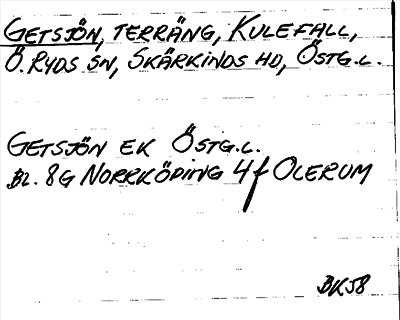 GETSJÖN, TERRÄNG, KULEFALL,
Ö. RYDS SN, SKÄRKINDS HD, ÖSTG.L.
GETSJÖN EK ÖSTG.L.
BL. 8G NORRKÖPING 4f OLERUM
BKJ8